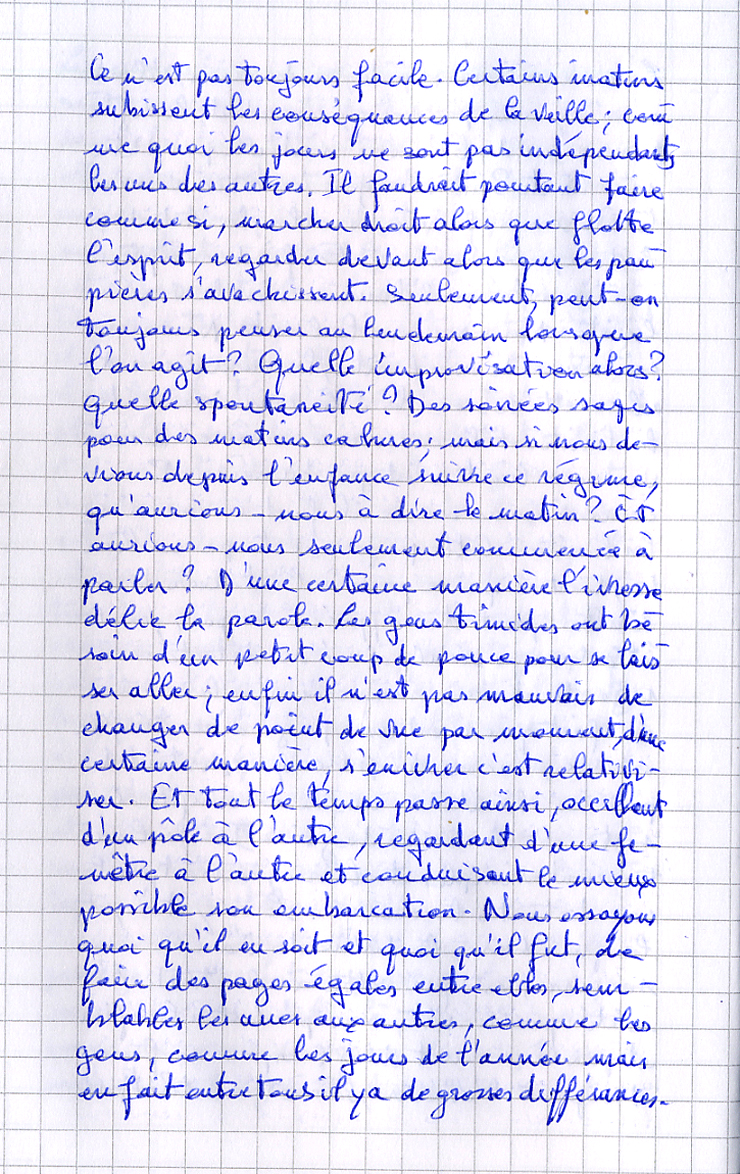 Ce n'est pas toujours facile. Certains matins
subissent les conséquences de la veille ; com
me quoi les jours ne sont pas indépendants
les uns des autres. Il faudrait pourtant faire
comme si, marcher droit alors que flotte
l'esprit, regarder devant alors que les pau
pières s'avachissent. Seulement, peut-on
toujours penser au lendemain lorsque
l'on agit ? Quelle improvisation alors ?
Quelle spontanéité ? Des soirées sages
pour des matins calmes ; mais si nous de-
vions depuis l'enfance suivre ce régime,
qu'aurions-nous à dire le matin ? Et
aurions-nous seulement commencé à
parler ? D'une certaine manière l'ivresse
délie la parole. Les gens timides ont be
soin d'un petit coup de pouce pour se lais
ser aller ; enfin il n'est pas mauvais de
changer de point de vue par moment, d'une
certaine manière, s'enivrer c'est relativi-
ser. Et tout le temps passe ainsi, oscillant
d'un pôle à l'autre, regardant d'une fe-
nêtre à l'autre et conduisant le mieux
possible son embarcation. Nous essayons
quoi qu'il en soit et quoi qu'il fut, de
faire des pages égales entre elles, sem-
blables les unes aux autres, comme les
gens, comme les jours de l'année mais
en fait entre tous il y a de grosses différances.